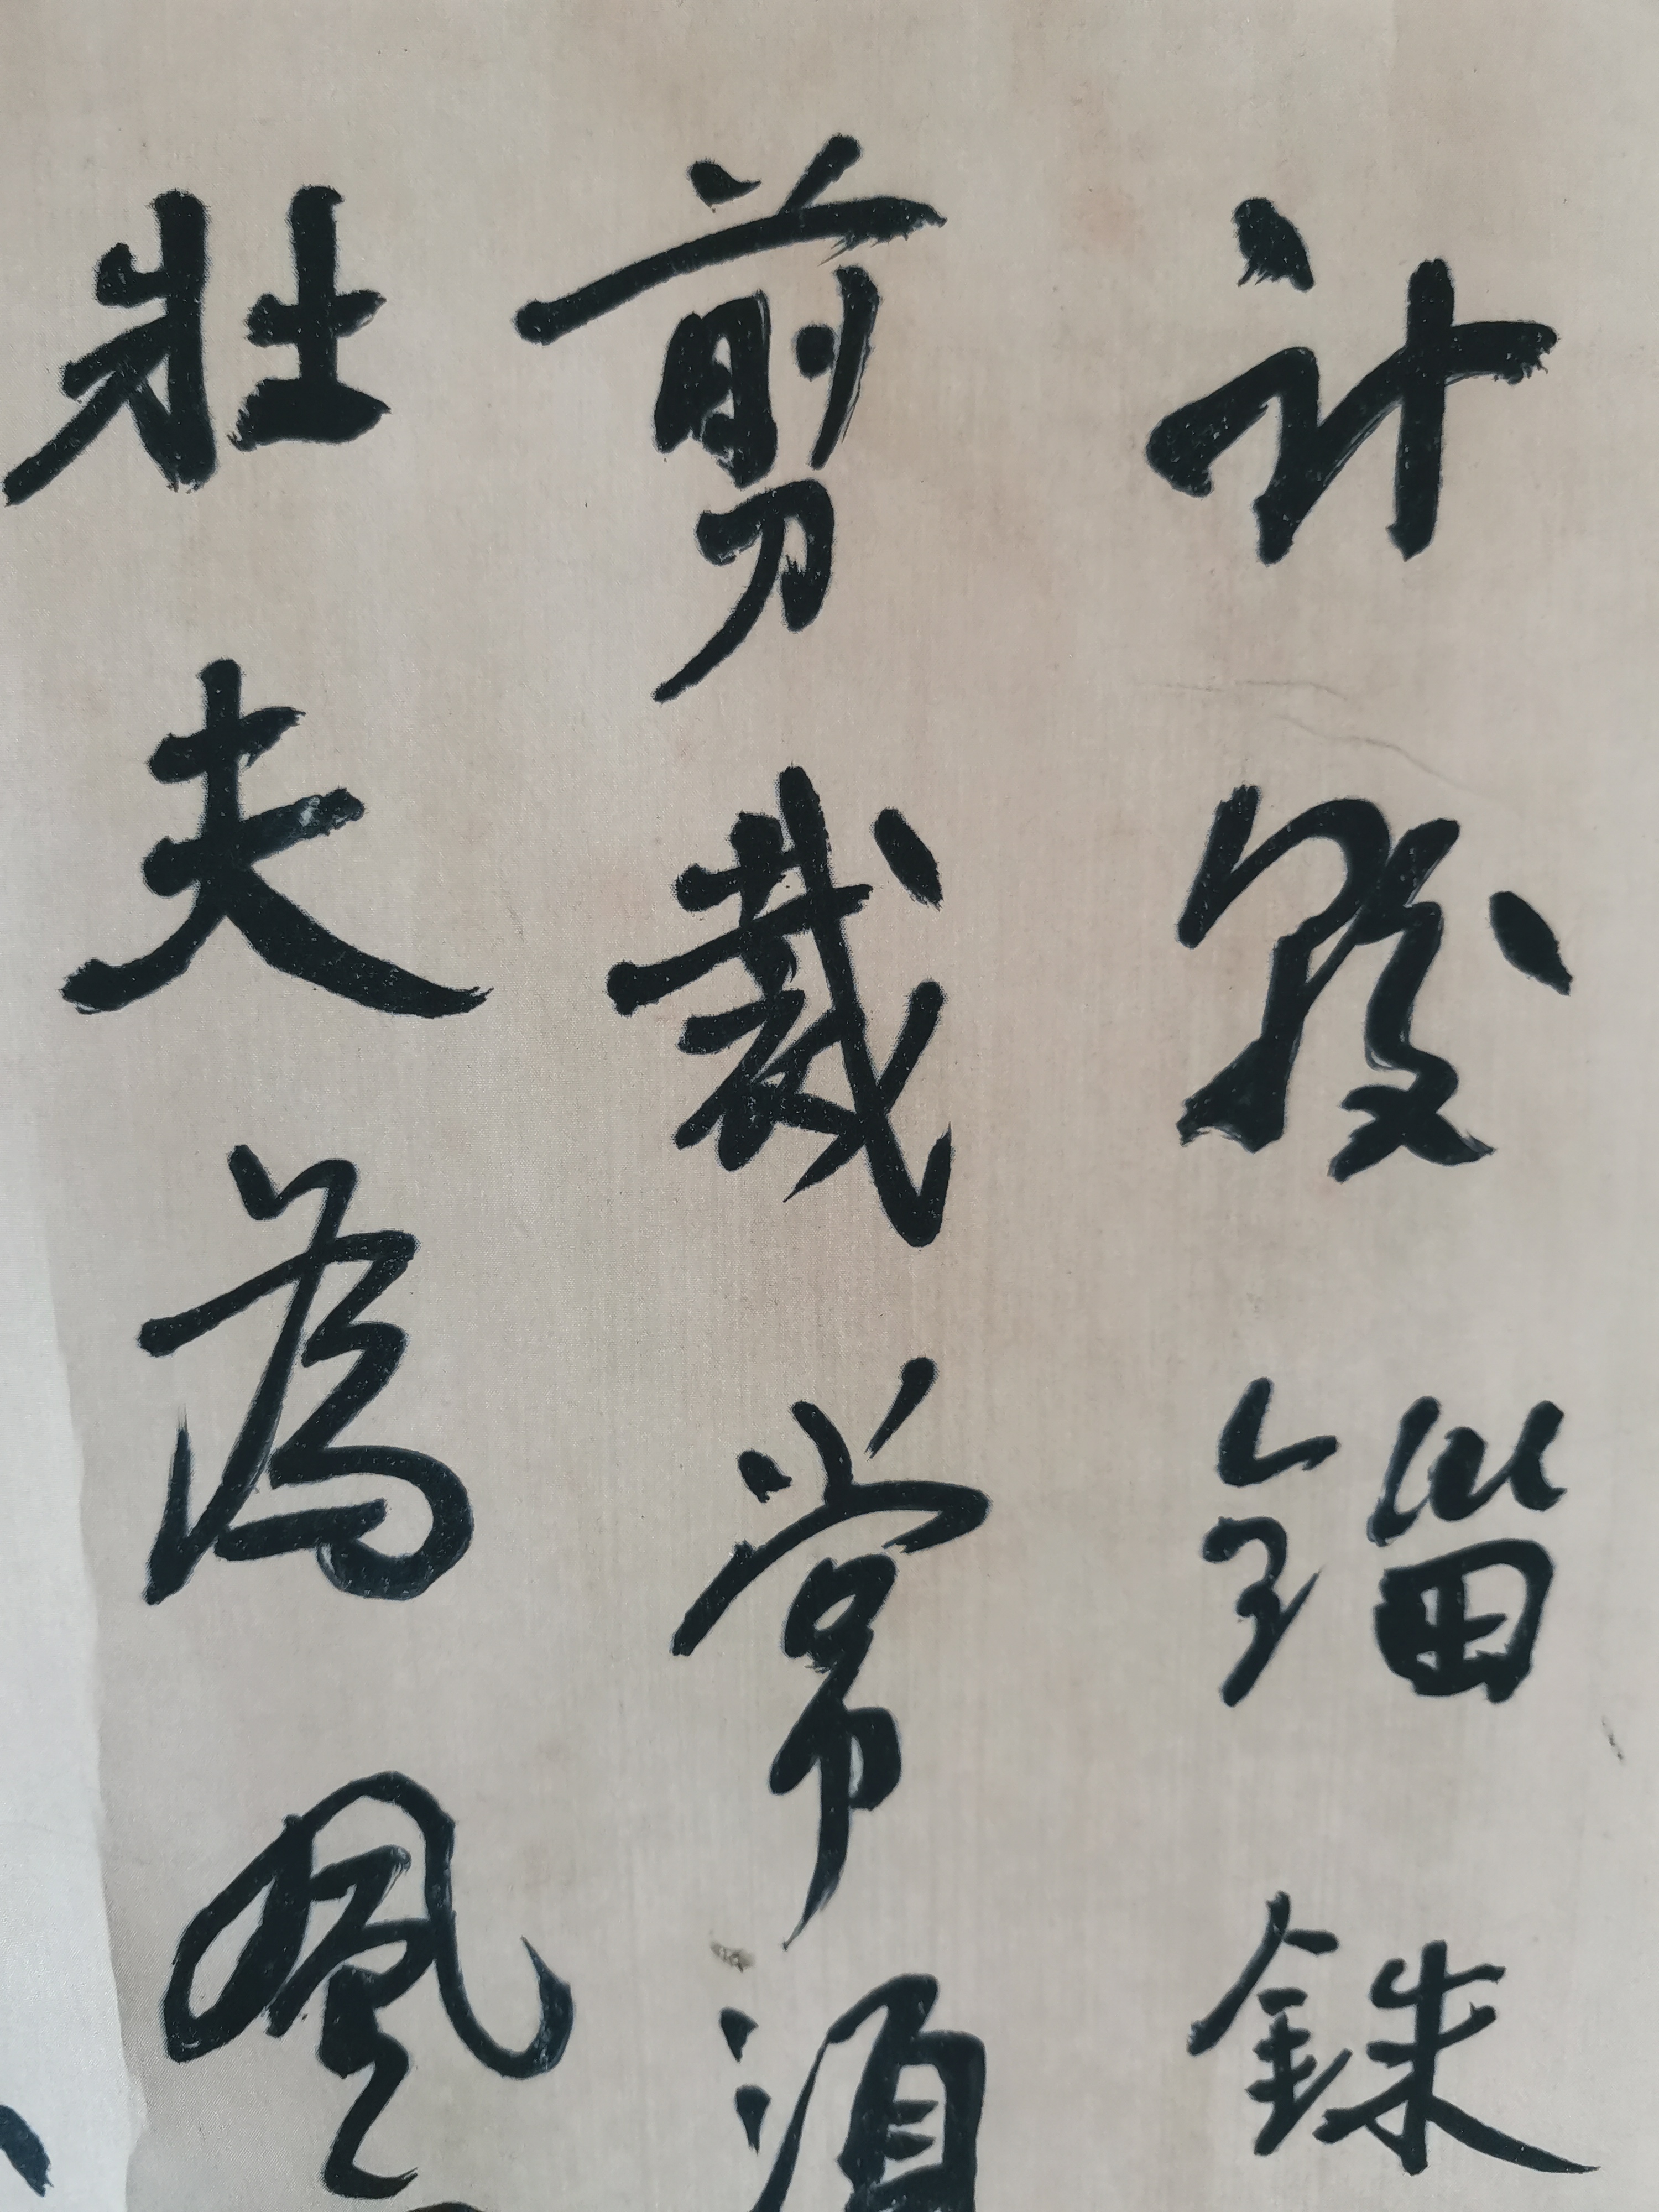 計較錙銖
剪裁常須
壯夫為風